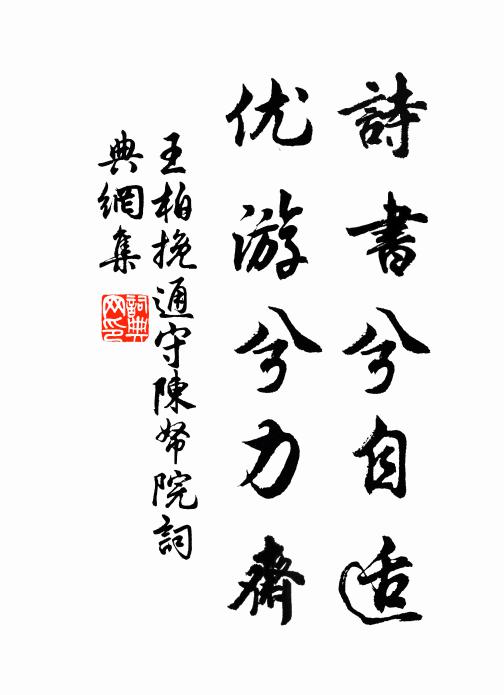 詩書兮自适
优游兮力齋
王柏挽通守陳帑院詞
典網集
詞典网印